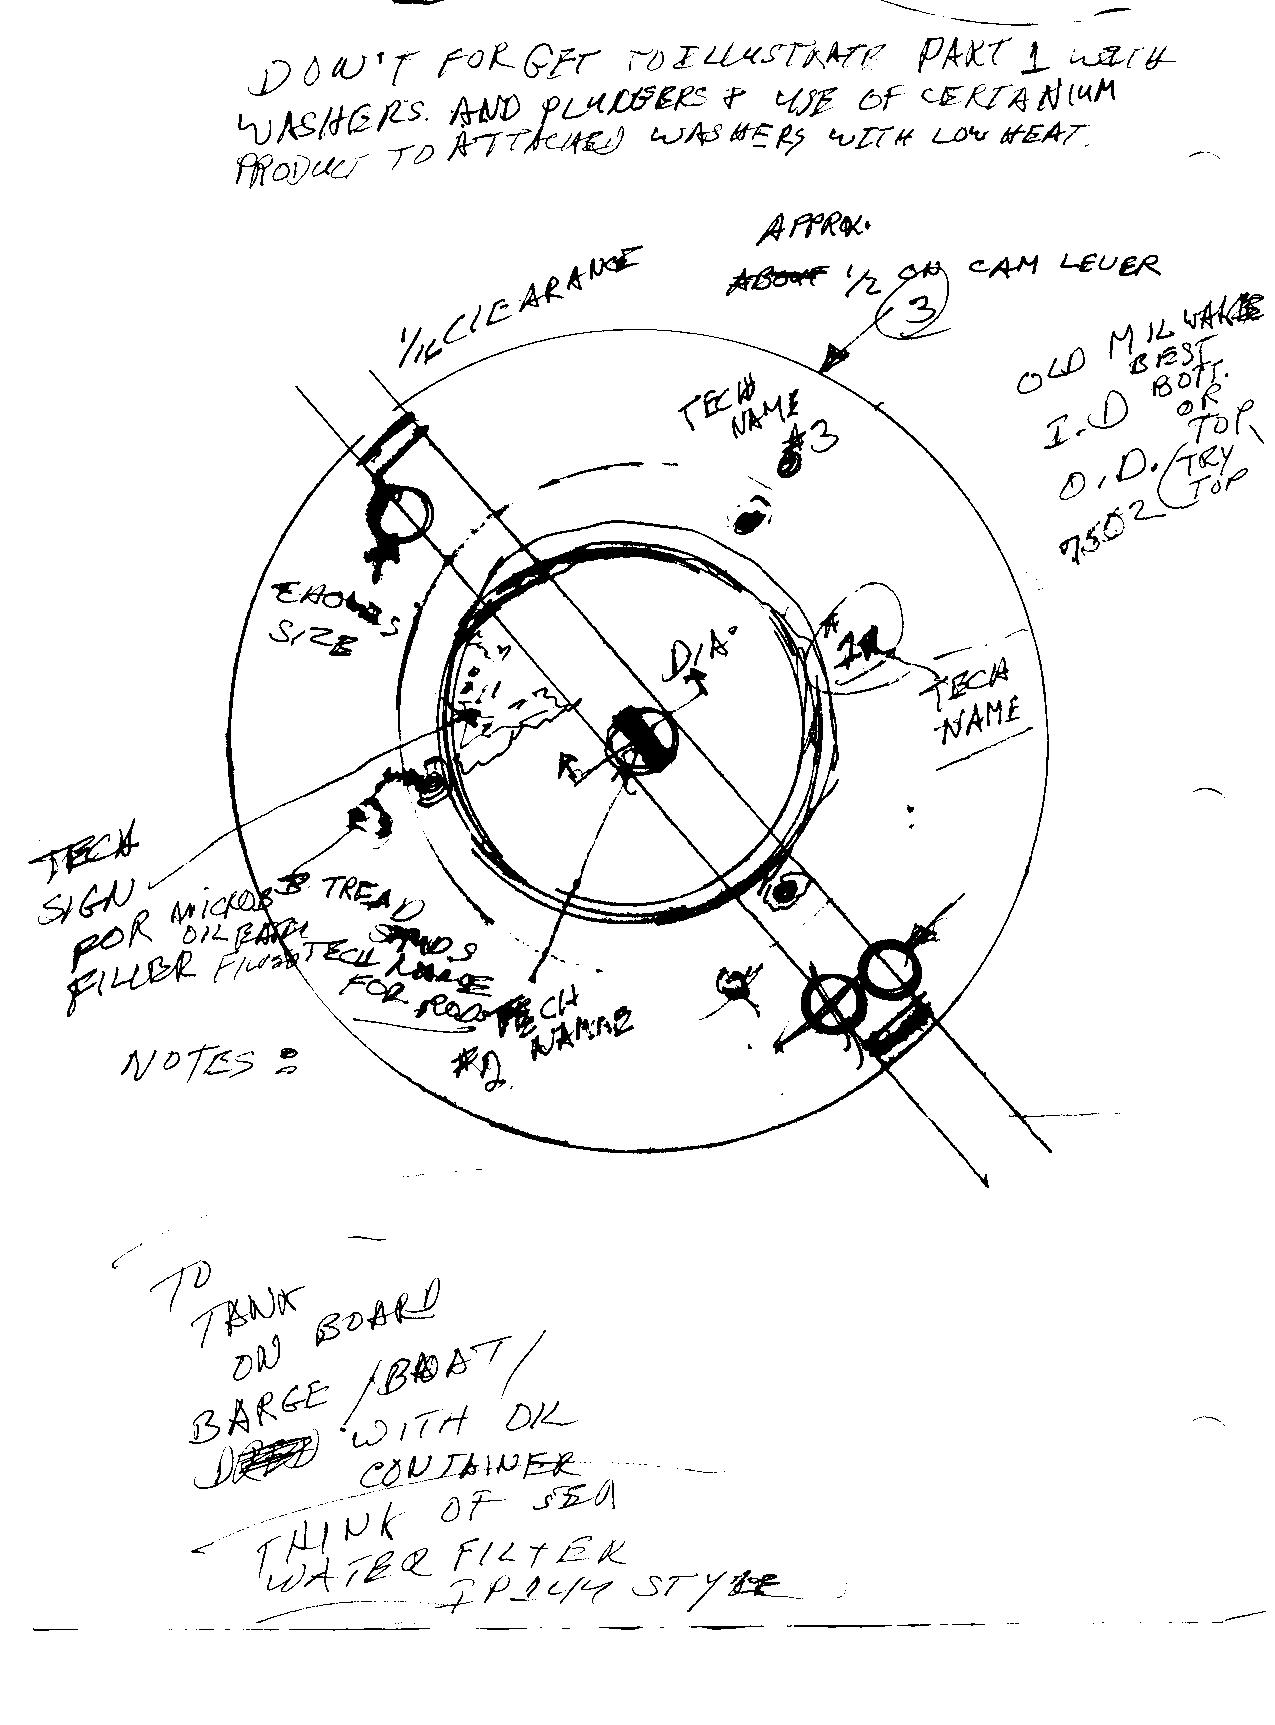 DON'T FORGET TO ILLUSTRATE PART 1 WITH
WASHERS. AND PLUNGERS & USE OF CERTANIUM
PRODUCT TO ATTACHED WASHERS WITH LOW HEAT.
APPROX.
1/2 ON CAM LEVER
3
1/16 CLEARANCE
OLD MILWAKE
BEST
I.D BOTT.
OR
TOP
O.D. (TRY
TOP
7502
TECH
NAME
#3
SIZE
DIA.
TECH
NAME
TECH
SIGN
FOR MICROB
OIL BATH
FILLER
TREAD
STUDS
TECH NAME
FOR
TECH
NAME
#2
NOTES:
TO
TANK
ON BOARD
BARGE /BOAT/
WITH OIL
CONTAINER
THINK OF SEA
WATER FILTER
STYLE